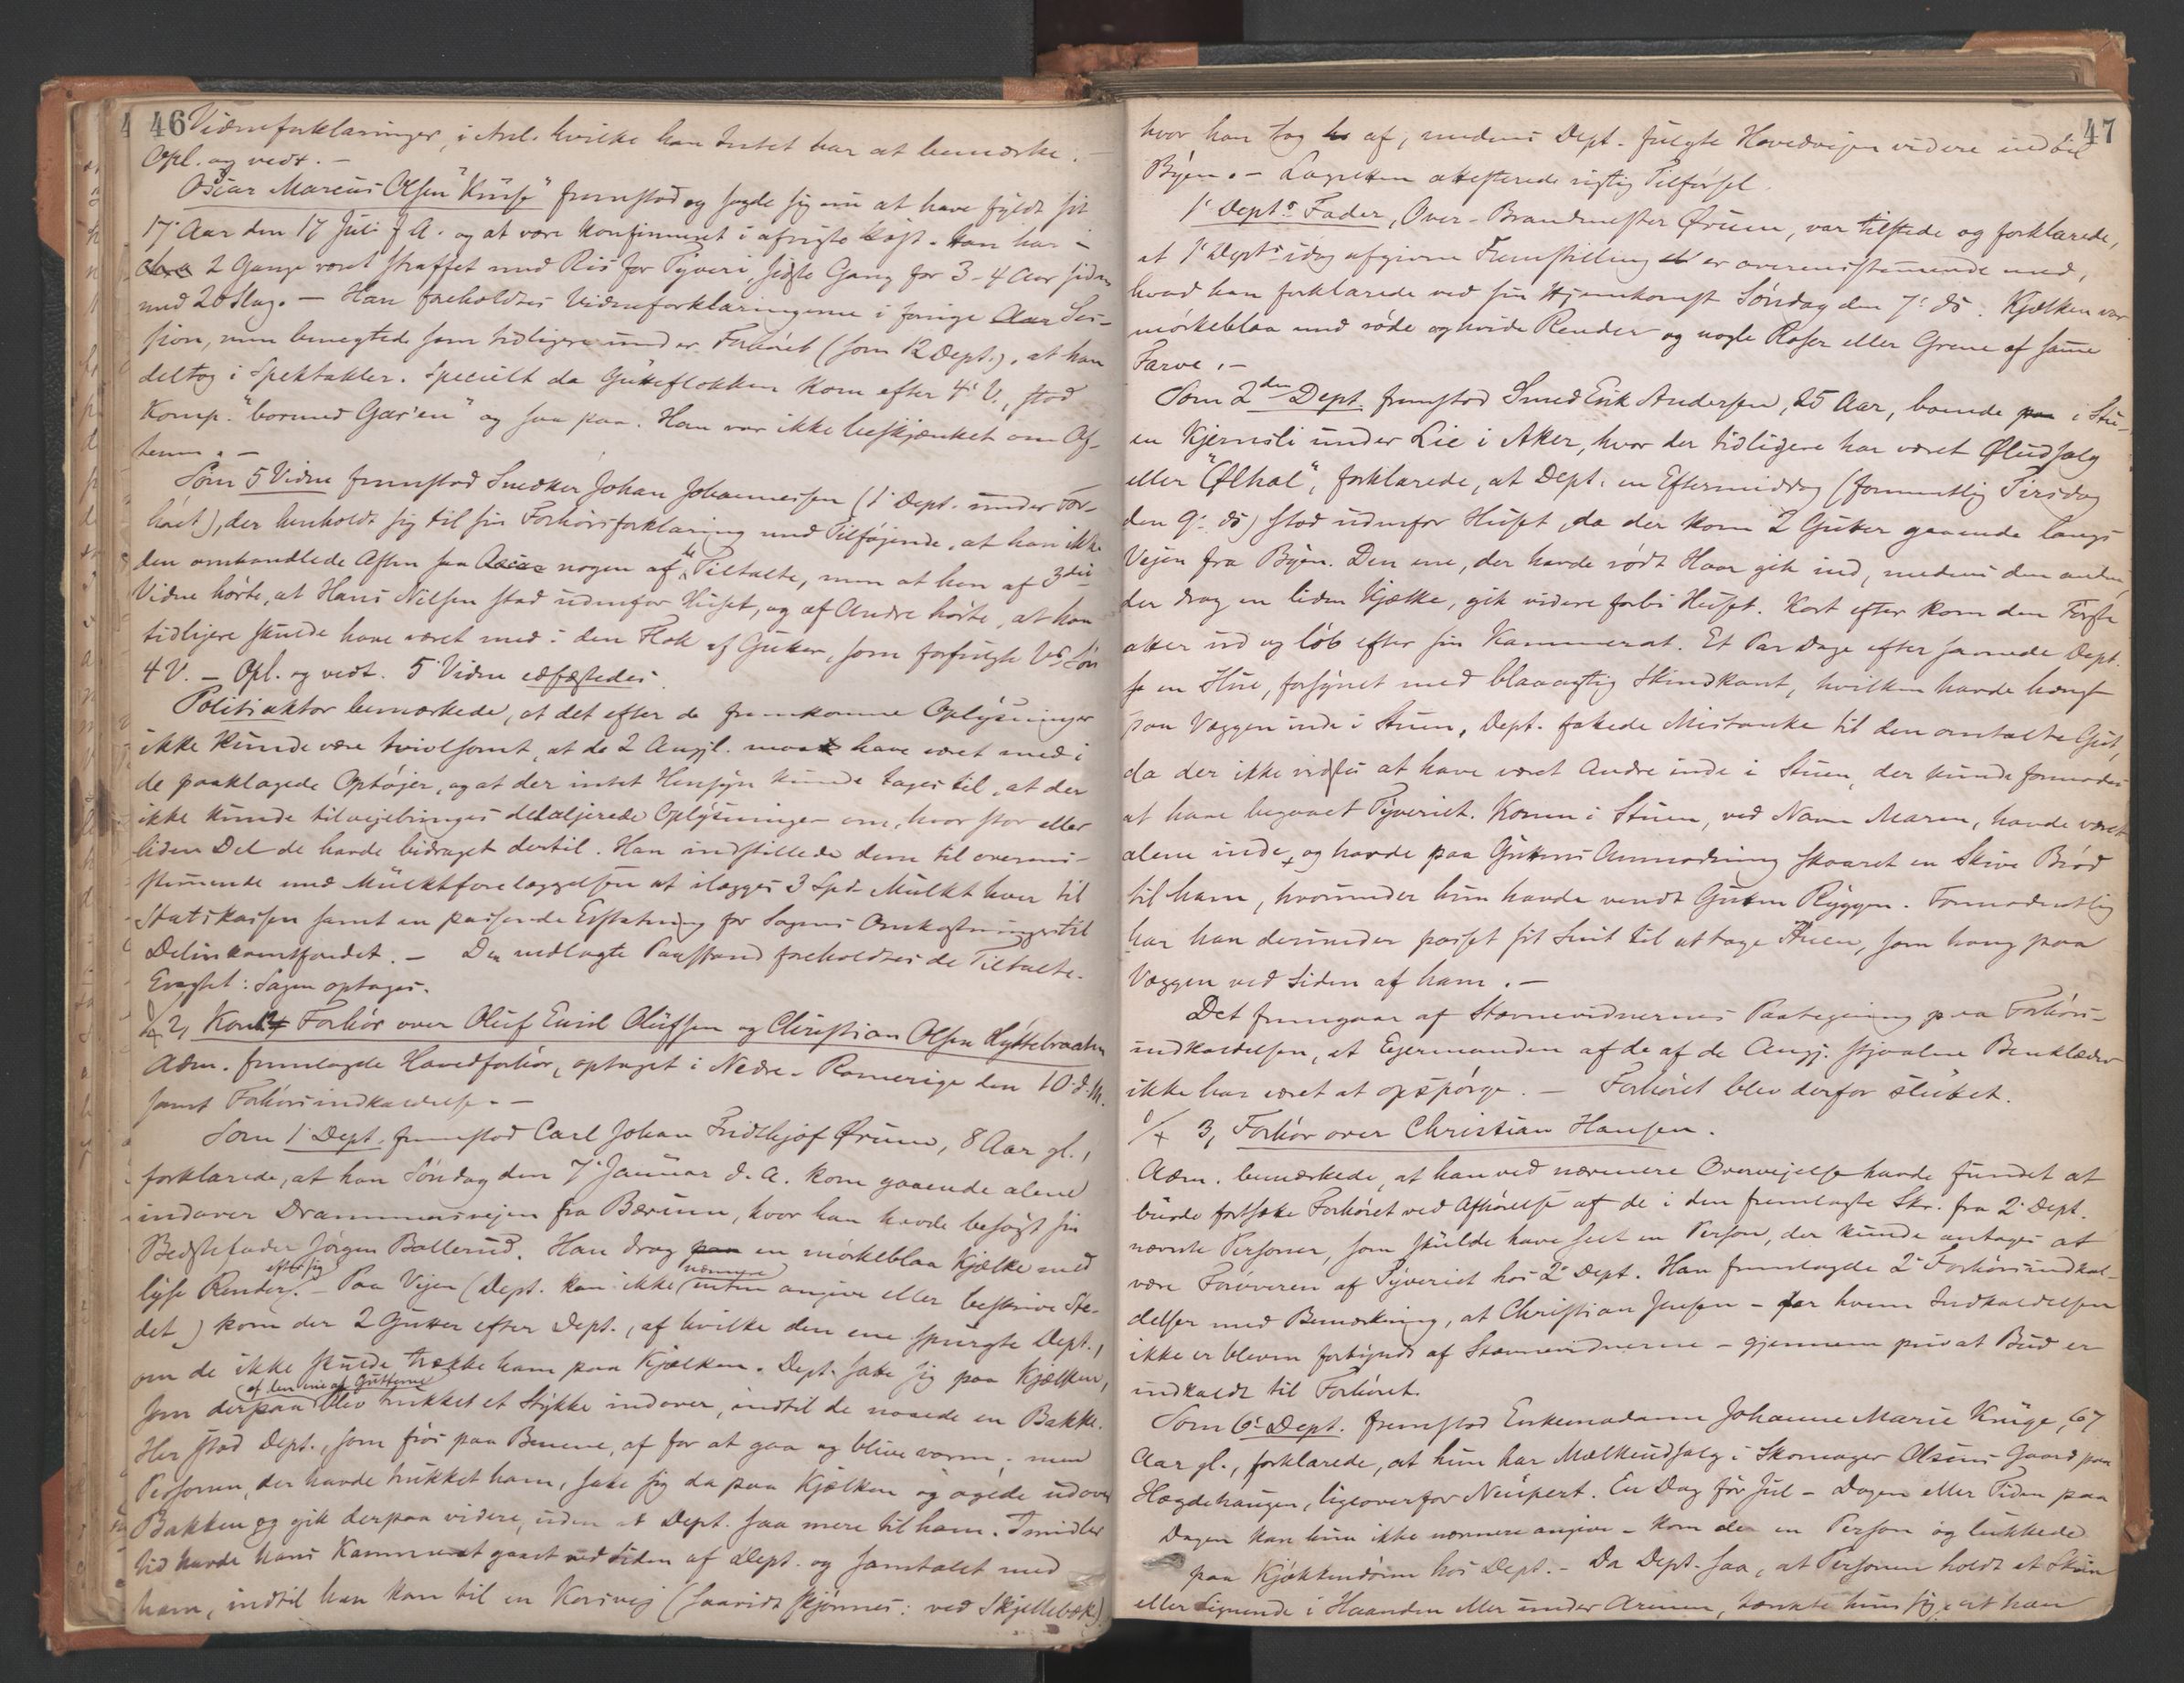 46 Vidneforklaringer, i Anl. hvilke han Intet har at bemærke. –
Opl. og vedt. –
Oscar Marcus Olsen "Knise" fremstod og sagde sig nu at have fyldt sit
17' Aar den 17 Juli f. A. og at være konfirmeret i afvigte Høst. Han har
2 Gange været straffet med Ris for Tyveri, sidste Gang for 3-4 Aar siden
med 20 Slag. – Han foreholdtes Vidneforklaringerne i forrige Aar Ses-
sion, men benegtede som tidligere under Forhøret (som 12 Dept.), at han
deltog i Spektakler. Specielt da Gutteflokken kom efter 4' V., stod
Komp. "bormed Gar'en" og saa paa. Han var ikke beskjænket om Af-
tenen. –
Som 5 Vidne fremstod Snedker Johan Johannessen (1' Dept. under For-
høret), der henholdt sig til sin Forhørsforklaring med Tilføjende, at han ikke
den omhandlede Aften saa nogen af de Tiltalte, men at han af 3die
Vidne hørte, at Hans Nilsen stod udenfor Huset, og af Andre hørte, at han
tidligere skulde have været med i den Flok af Gutter, som forfulgte V's Søn
4 V. – Opl. og vedt. 5' Vidne edfæstedes.
Politiaktor bemærkede, at det efter de fremkomne Oplysninger
ikke kunde være tvivlsomt, at de 2 Angjl. maa have været med i
de paaklagede Optøjer, og at der intet Hensyn kunde tages til, at der
ikke kunde tilvejebringes detaljerede Oplysninger om, hvor stor eller
liden Del de havde bidraget dertil. Han indstillede dem til overens-
stemmende med Mulktforelæggelsen at ilægges 3 Spd. Mulkt hver til
Statskassen samt en passende Erstatning for Sagens Omkostninger til
Delinkventfondet. – Den nedlagte Paastand foreholdtes de Tiltalte.
Eragtet: Sagen optages.
2, Kont. Forhør over Oluf Emil Olufsen og Christian Olsen Hyttebraaten
Adm. fremlagde Hovedforhør, optaget i Nedre-Romerige den 10' d. M.
samt Forhørsindkaldelse. –
Som 1' Dept. fremstod Carl Johan Fridthjof Ørum, 8 Aar gl.,
forklarede, at han Søndag den 7' Januar d. A. kom gaaende alene
indover Drammensvejen fra Bærum, hvor han havde besøgt sin
Bedstefader Jørgen Ballerud. Han drog paa en mørkeblaa Kjælke med
lyse Render efter sig. – Paa Vejen (Dept. kan ikke nærmere angive eller beskrive Ste-
det) kom der 2 Gutter efter Dept., af hvilke den ene spurgte Dept.,
om de ikke skulde trække ham paa Kjælken. Dept. satte sig paa Kjælken,
som derpaa af den ene af Gutterne blev trukket et Stykke indover, indtil de naaede en Bakke.
Her stod Dept., som frøs paa Benene, af for at gaa og blive varm, men
Personen, der havde trukket ham, satte sig da paa Kjælken og agede udover
Bakken og gik derpaa videre, uden at Dept. saa mere til ham. Imidler
tid havde hans Kammerat gaaet ved Siden af Dept. og samtalet med
ham, indtil han kom til en Korsvej (saavidt skjønnes: ved Skjellebæk)
47
hvor han tog af, medens Dept. fulgte Hovedvejen videre ind til
Byen. – Lagretten attesterede rigtig Tilførsel.
1' Dept's Fader, Over-Brandmester Ørum, var tilstede og forklarede,
at 1' Dept's idag afgivne Fremstilling er overensstemmende med,
hvad han forklarede ved sin Hjemkomst Søndag den 7' ds. Kjælken var
mørkeblaa med røde og hvide Render og nogle Roser eller Grene af samme
Farve. –
Som 2den Dept. fremstod Smed Erik Andersen, 25 Aar, boende paa i Stu-
en Kjernsli under Lie i Aker, hvor der tidligere har været Øludsalg
eller "Ølhal", forklarede, at Dept. en Eftermiddag (formentlig Tirsdag
den 9' ds) stod udenfor Huset, da der kom 2 Gutter gaaende langs
Vejen fra Byen. Den ene, der havde rødt Haar gik ind, medens den anden,
der drog en liden Kjælke, gik videre forbi Huset. Kort efter kom den Første
atter ud og løb efter sin Kammerat. Et Par Dage efter savnede Dept.
en Hue, forsynet med blaaagtig Skindkant, hvilken havde hængt
paa Væggen inde i Stuen, Dept. fattede Mistanke til den omtalte Gut,
da der ikke vidstes at have været Andre inde i Stuen, der kunde formodes
at have begaaet Tyveriet. Konen i Stuen, ved Navn Maren, havde været
alene inde, og havde paa Guttens Anmodning skaaret en Skive Brød
til ham, hvorunder hun havde vendt Gutten Ryggen. Formodentlig
har han derunder passet sit Snit til at tage Huen, som hang paa
Væggen ved Siden af ham. –
Det fremgaar af Stævnevidnernes Paategning paa Forhørs-
indkaldelsen, at Ejermanden af de af de Angj. stjaalne Benklæder
ikke har været at opspørge. – Forhøret blev derfor sluttet.
3, Forhør over Christian Hansen.
Adm. bemærkede, at han ved nærmere Overvejelse havde fundet at
burde fortsætte Forhøret ved Afhørelse af de i den fremlagte Skr. fra 2' Dept.
nævnte Personer, som skulde have seet en Person, der kunde antages at
være Forøveren af Tyveriet hos 2' Dept. Han fremlagde 2' Forhørsindkal-
delser med Bemærkning, at Christian Jensen – for hvem Indkaldelsen
ikke er bleven forkyndt af Stævnevidnerne – gjennem privat Bud er
indkaldt til Forhøret.
Som 6' Dept. fremstod Enkemadame Johanne Marie Krüge, 67
Aar gl., forklarede, at hun har Mælkeudsalg i Skomager Olsens Gaard paa
Hægdehaugen, ligeoverfor Neupert. En Dag før Jul – Dagen eller Tiden paa
Dagen kan hun ikke nærmere angive – kom der en Person og lukkede
paa Kjøkkendøren hos Dept. – Da Dept. saa, at Personen holdt et Skrin
eller Lignende i Haanden eller under Armen, tænkte hun sig, at han